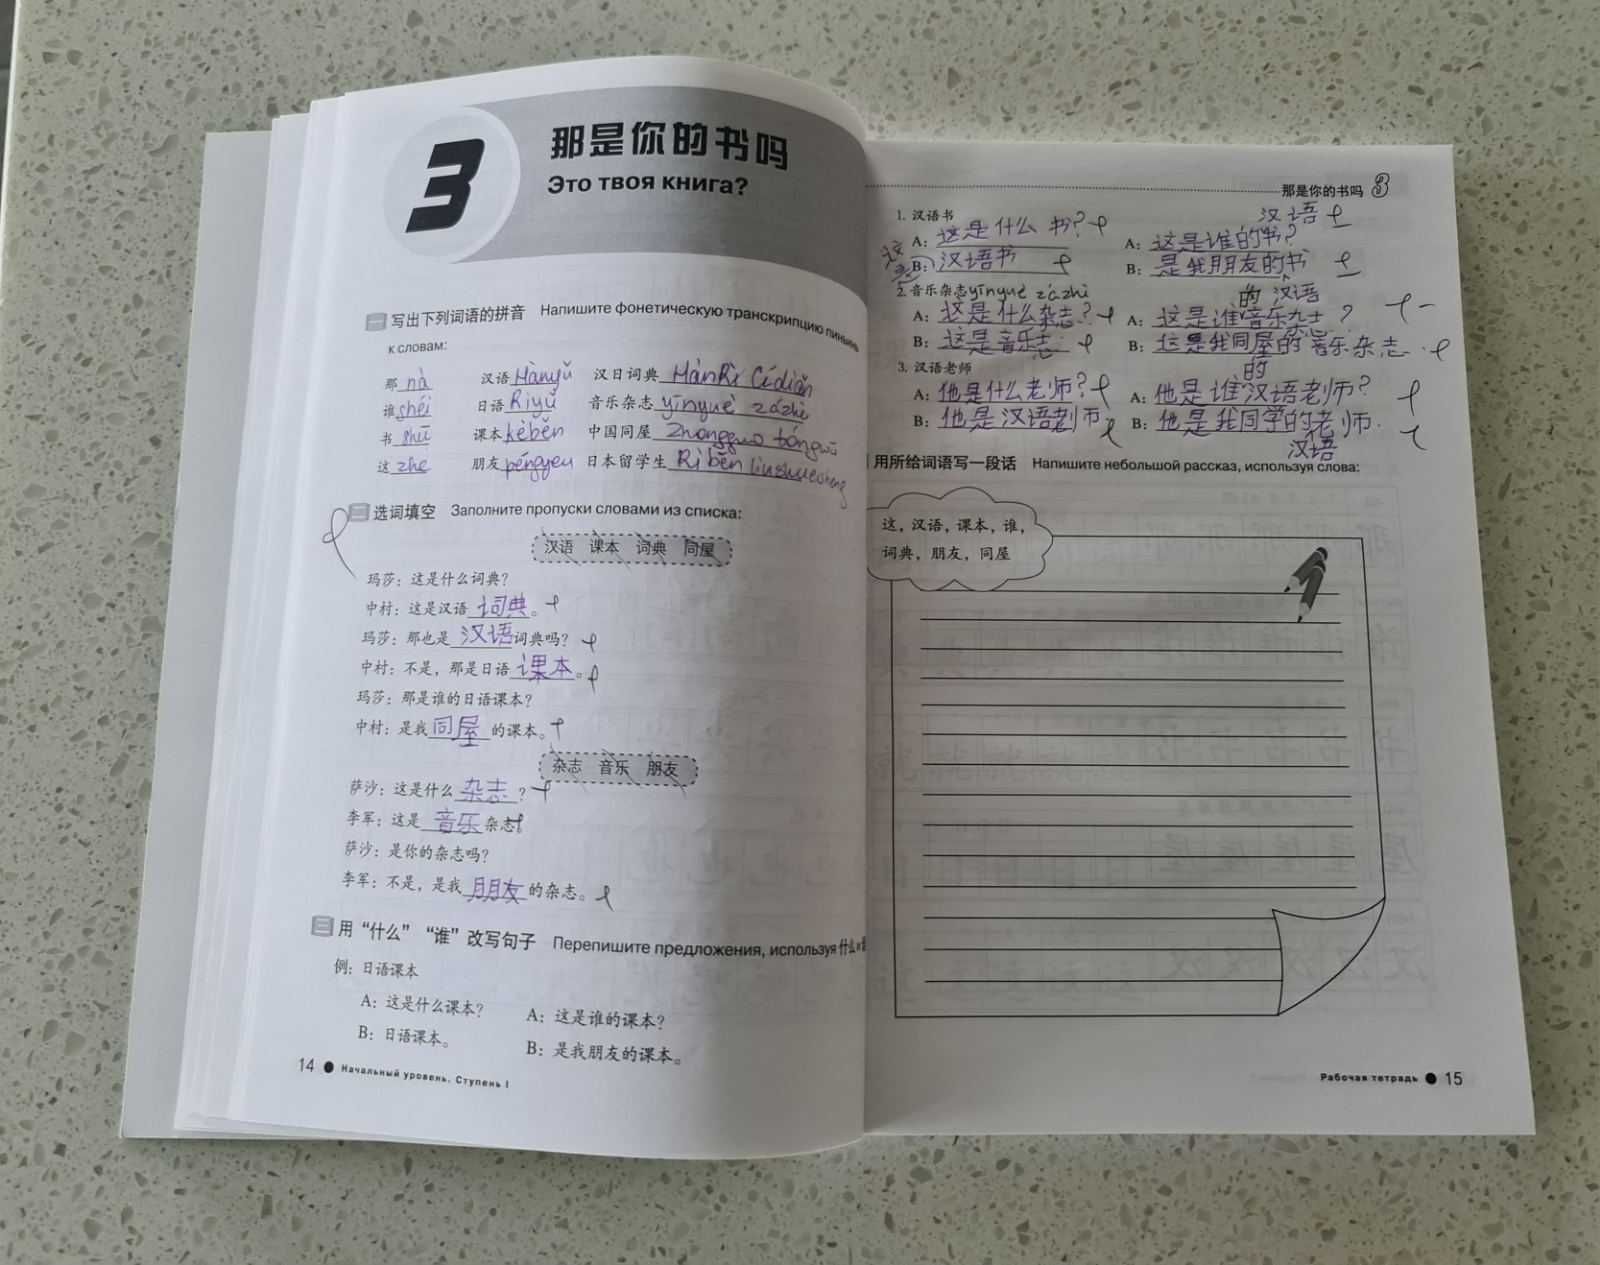 3
那是你的书吗
Это твоя книга?
一 写出下列词语的拼音 Напишите фонетическую транскрипцию пиньинь
к словам:
那 nà 汉语 Hànyǔ 汉日词典 HànRì Cídiǎn
谁 shéi 日语 Rìyǔ 音乐杂志 yīnyuè zázhì
书 shū 课本 kèběn 中国同屋 Zhongguo tóngwū
这 zhe 朋友 péngyou 日本留学生 Rìběn liushuesheng
二 选词填空 Заполните пропуски словами из списка:
汉语 课本 词典 同屋
玛莎：这是什么词典？
中村：这是汉语 词典。
玛莎：那也是 汉语 词典吗？
中村：不是，那是日语 课本。
玛莎：那是谁的日语课本？
中村：是我 同屋 的课本。
杂志 音乐 朋友
萨沙：这是什么 杂志？
李军：这是 音乐 杂志。
萨沙：是你的杂志吗？
李军：不是，是我 朋友 的杂志。
三 用“什么”“谁”改写句子 Перепишите предложения, используя 什么 и
例：日语课本
A：这是什么课本？ A：这是谁的课本？
B：日语课本。 B：是我朋友的课本。
14 ● Начальный уровень. Ступень I
那是你的书吗 3
1. 汉语书 汉语
A：这是什么 书？ A：这是谁的书？
这是 B：汉语书 B：是我朋友的书
的 汉语
2. 音乐杂志 yīnyuè zázhì
A：这是什么杂志？ A：这是谁音乐杂志？
B：这是音乐志 B：这是我同屋的音乐杂志.
3. 汉语老师 的
A：他是什么老师？ A：他是谁汉语老师？
B：他是汉语老师 B：他是我同学的老师.
汉语
用所给词语写一段话 Напишите небольшой рассказ, используя слова:
这，汉语，课本，谁，
词典，朋友，同屋
Рабочая тетрадь ● 15